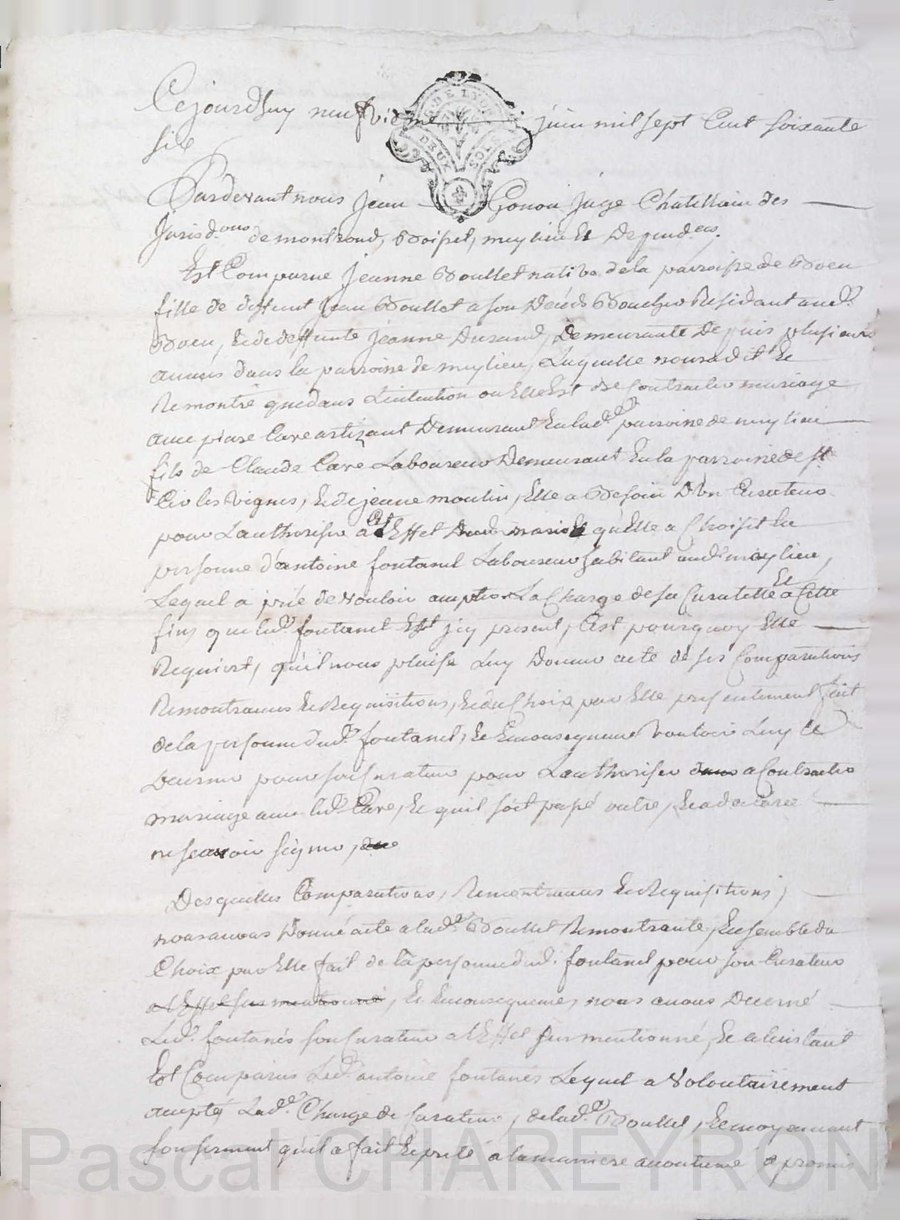 Cejourdhuy neufvieme juin mil sept Cent soixante
six
G. DE LYON
DEUX SOLS
Pardevant nous jean Gonon juge Chatellain des
Jurisd.ons de montrond, Boisset, meylieu Et Dependces.
Est Comparue Jeanne Boullet native de la parroisse de Boen
fille de deffunt Jean Boullet a son Décés Boucher Residant aud.
Boen, Et de deffunte jeanne Durand, Demeurante Depuis plusieurs
années dans la parroisse de meylieu, Laquelle nous a dit Et
Remontré que dans L'intention ou Elle Est de Contracter mariage
avec piere Care artizant Demeurant En lad. parroisse de meylieu
fils de Claude Care Laboureur Demeurant En la parroisse de st
les vignes, Et de jeanne moulin, Elle a Besoin D'un Curateur
pour L'authoriser a Cet Effet quelle a Choisit La
personne d'antoine fontanel Laboureur habitant aud. meylieu,
Lequel a prié de vouloir accepter La Charge de sa Curatelle Et a Cette
fins que led. fontanel Est jcy present, C'est pourquoy Elle
Requiert, qu'il nous plaise Luy Donner acte de ses Comparutions
Remontrances Et Requisitions, Et du Choix par Elle presentement fait
de la personne dud. fontanel, Et En consequence vouloir Luy Le
Decerner pour son Curateur pour L'authoriser a Contracter
mariage avec led. Care, Et quil soit passé outre, Et a declaré
ne scavoir signer,
Desquelles Comparutions, Remontrances Et Requisitions,
nous avons Donné acte a lad. Boullet Remontrante, Ensemble du
Choix par Elle fait de la personne dud. fontanel pour son Curateur
a l'Effet sus mentionné, Et En consequence, nous avons Decerné
Led. fontanés son Curateur a l'Effet sus mentionné, Et a linstant
Est Comparus Led. antoine fontanés Lequel a volontairement
accepté Lad. Charge de Curateur, de lad. Boullet, Et moyennant
son serment qu'il a fait Et preté a la maniere accoutumé a promis
Pascal CHAREYRON